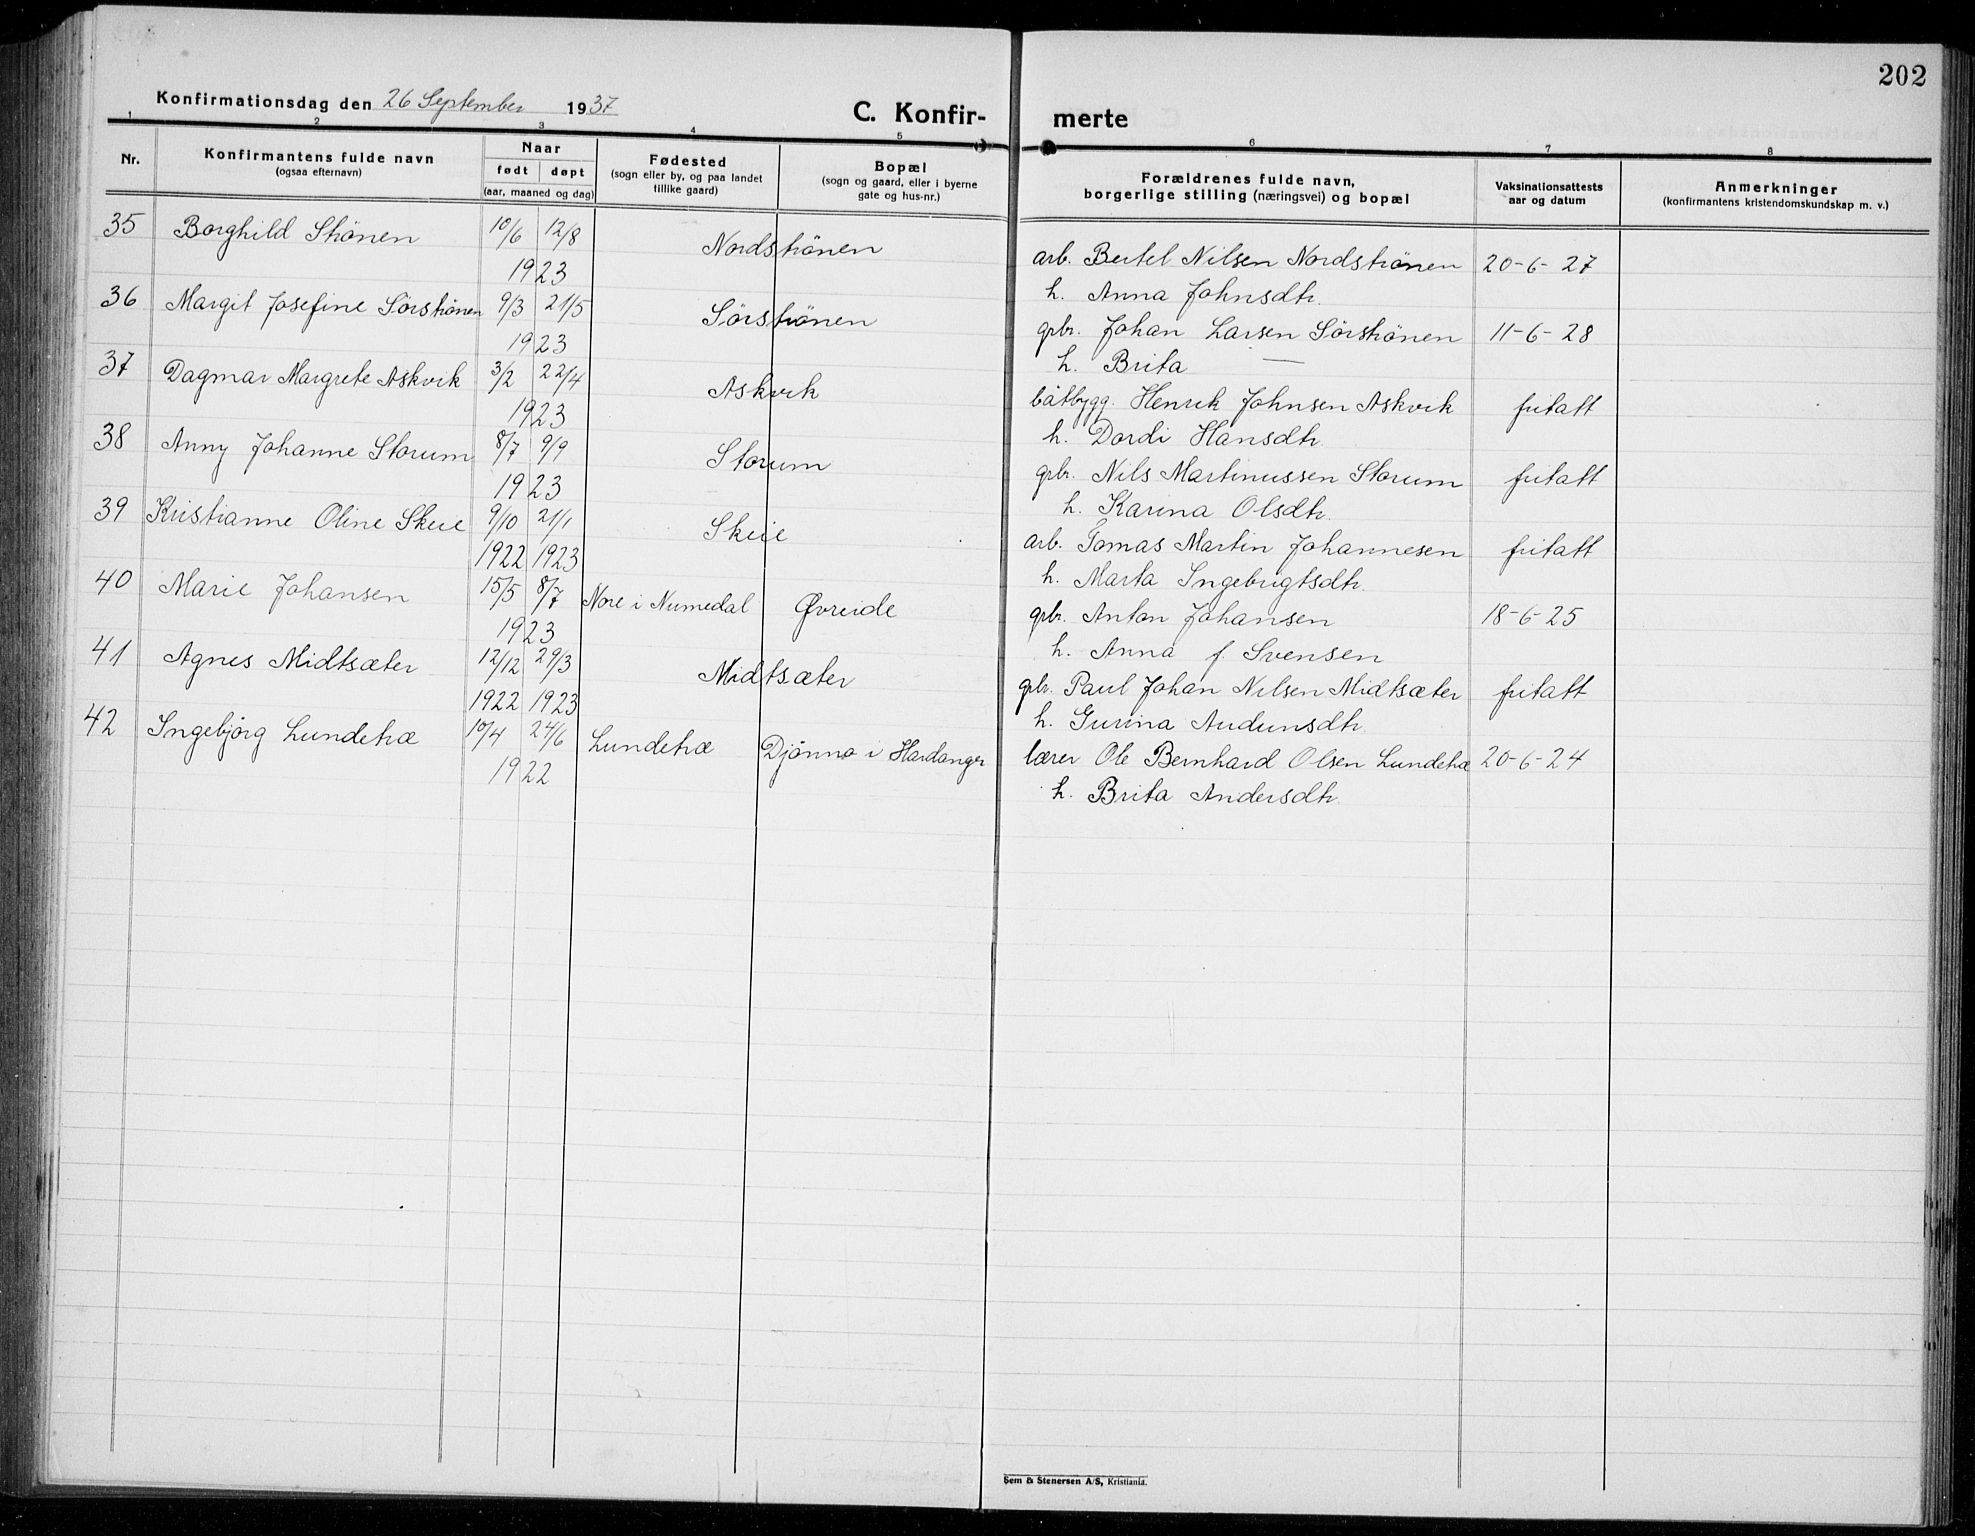 202
Konfirmationsdag den 26 September 1937
C. Konfir- merte
1 2 3 4 5 6 7 8
Nr.
Konfirmantens fulde navn
(ogsaa efternavn)
Naar
født døpt
(aar, maaned og dag)
Fødested
(sogn eller by, og paa landet
tillike gaard)
Bopæl
(sogn og gaard, eller i byerne
gate og hus-nr.)
Forældrenes fulde navn,
borgerlige stilling (næringsvei) og bopæl
Vaksinationsattests
aar og datum
Anmerkninger
(konfirmantens kristendomskundskap m. v.)
35 Borghild Strönen 10/6 12/8 Nordströnen arb. Bertel Nilsen Nordströnen 20-6-27
1923 h. Anna Johnsdtr.
36 Margit Josefine Sörströnen 9/3 21/5 Sörströnen gbr. Johan Larsen Sörströnen 11-6-28
1923 h. Brita —
37 Dagmar Margrete Askvik 3/2 22/4 Askvik båtbygg. Henrik Johnsen Askvik fritatt
1923 h. Dordi Hansdtr.
38 Anny Johanne Storum 8/7 9/9 Storum gbr. Nils Martinussen Storum fritatt
1923 h. Karina Olsdtr.
39 Kristianne Oline Skeie 9/10 21/1 Skeie arb. Tomas Martin Johannesen fritatt
1922 1923 h. Marta Ingebrigtsdtr.
40 Marie Johansen 15/5 8/7 Nore i Numedal Øvreide gbr. Anton Johansen 18-6-25
1923 h. Anna f. Svensen
41 Agnes Midtsæter 12/12 29/3 Midtsæter gbr. Paul Johan Nilsen Midtsæter fritatt
1922 1923 h. Gurina Audunsdtr.
42 Ingebjörg Lundetræ 10/4 24/6 Lundetræ Djönno i Hardanger lærer Ole Bernhard Olsen Lundetræ 20-6-24
1922 h. Brita Andersdtr.
Sem & Stenersen A/S, Kristiania.